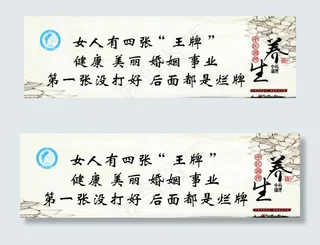 女人有四张“王牌”
健康 美丽 婚姻 事业
第一张没打好 后面都是烂牌
养生
女人有四张“王牌”
健康 美丽 婚姻 事业
第一张没打好 后面都是烂牌
养生